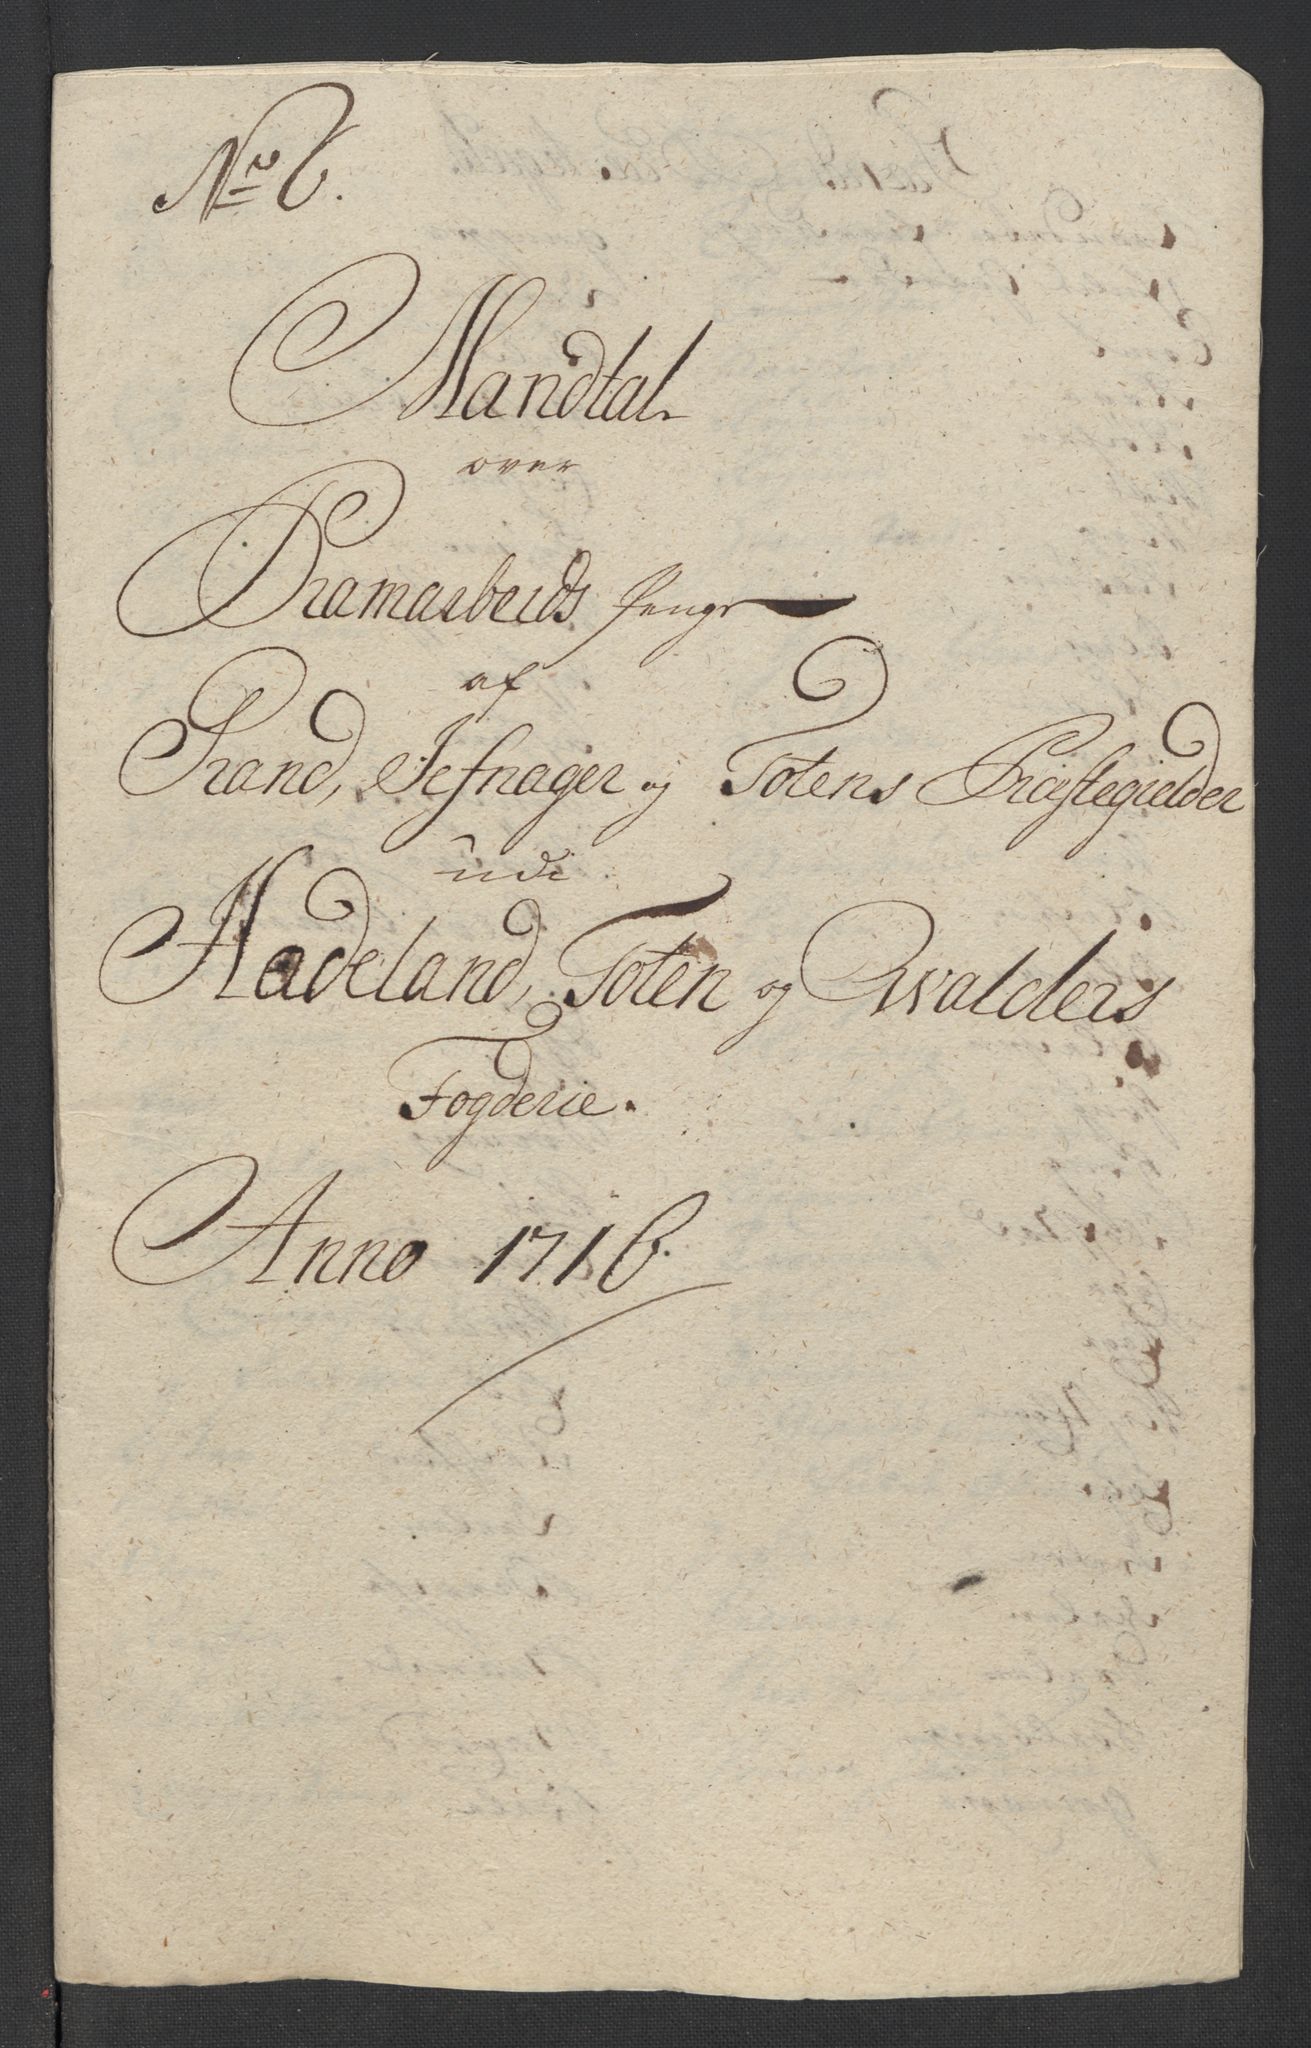 No 6.
Mandtal
over
Pramarbeids Penge
af
Grand, Jefnager og Totens Præstegielder
udi
Hadeland, Toten og Walders
Fogderie.
Anno 1716.